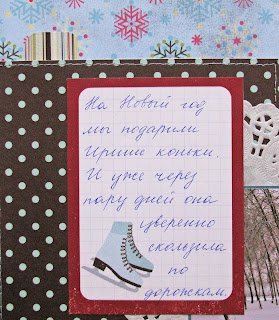 На Новый год
мы подарили
Ирише коньки.
И уже через
пару дней она
уверенно
скользила
по
дорожкам.